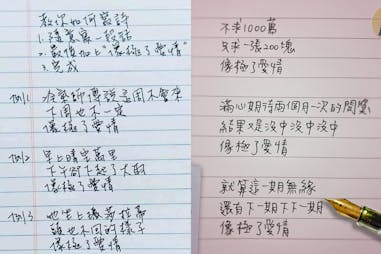 教你如何寫詩
1.隨意寫一段話
2.最後加上"像極了愛情"
3.完成
冷氣師傅說這周不會來
下周也不一定
像極了愛情
早上晴空萬里
下午卻下起了大雨
像極了愛情
誰也不同的樣子
像極了愛情
不求1000萬
只求一張200塊
像極了愛情
滿心期待兩個月一次的開獎
結果又是沒中沒中沒中
像極了愛情
就算這一期無緣
還有下一期下下一期
像極了愛情